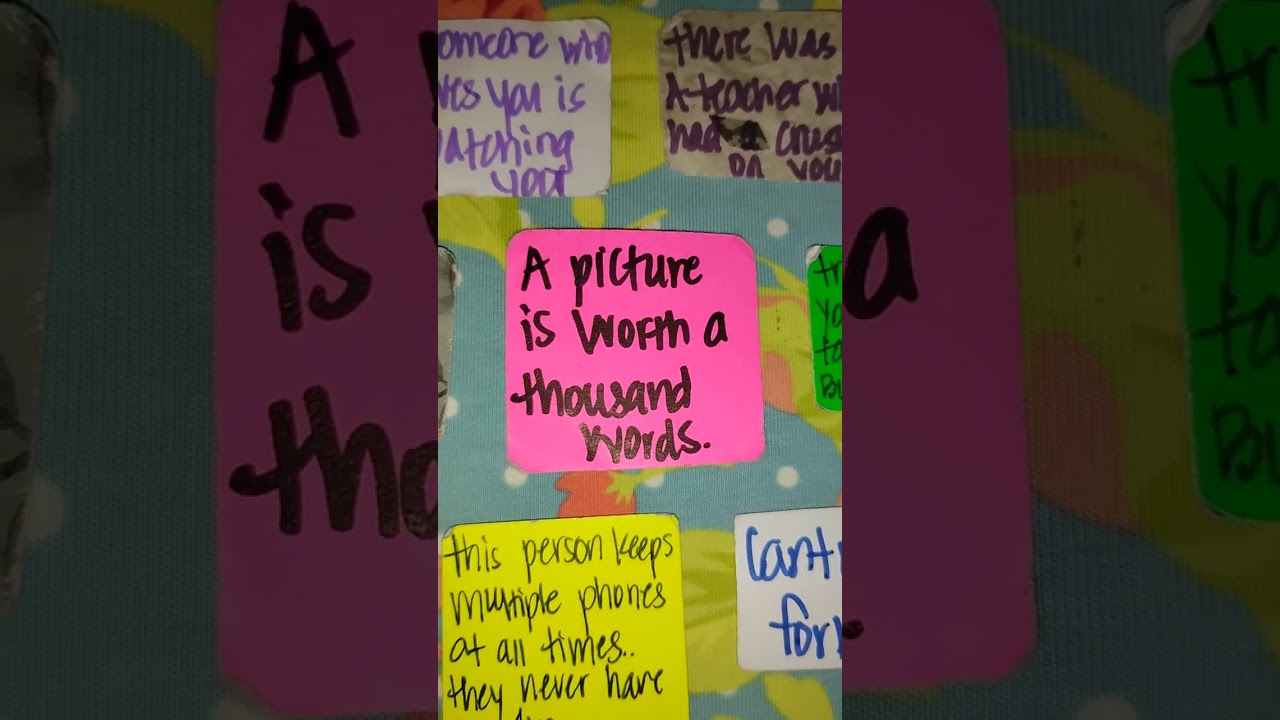 omeone who
es you is
atching
your
there was
A teacher w
had a crus
on you
A picture
is worth a
thousand
words.
tr
yo
ta
Bu
this person keeps
multiple phones
at all times..
they never have
Cant
for
A
is
tho
a
tr
yo
ta
Bu